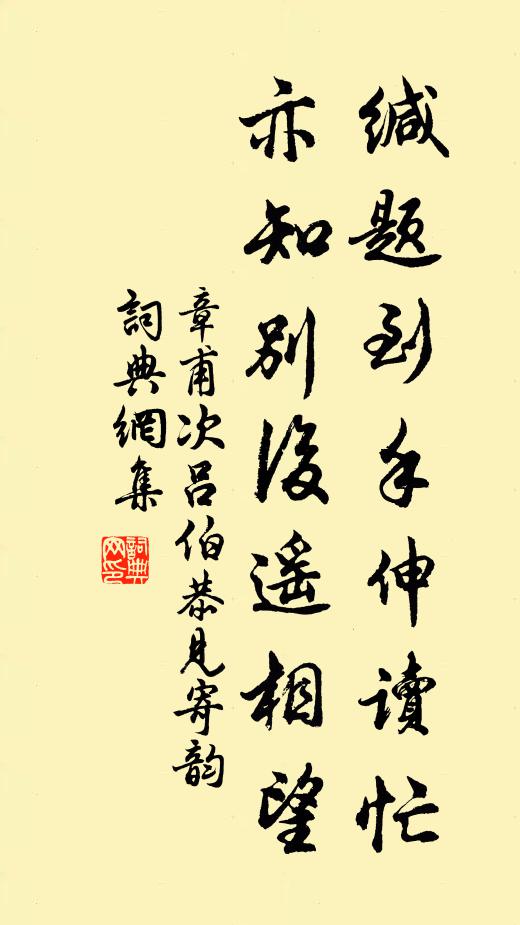 缄题到手伸读忙
亦知别後遥相望
章甫次吕伯恭见寄韵
词典網集
詞典網印